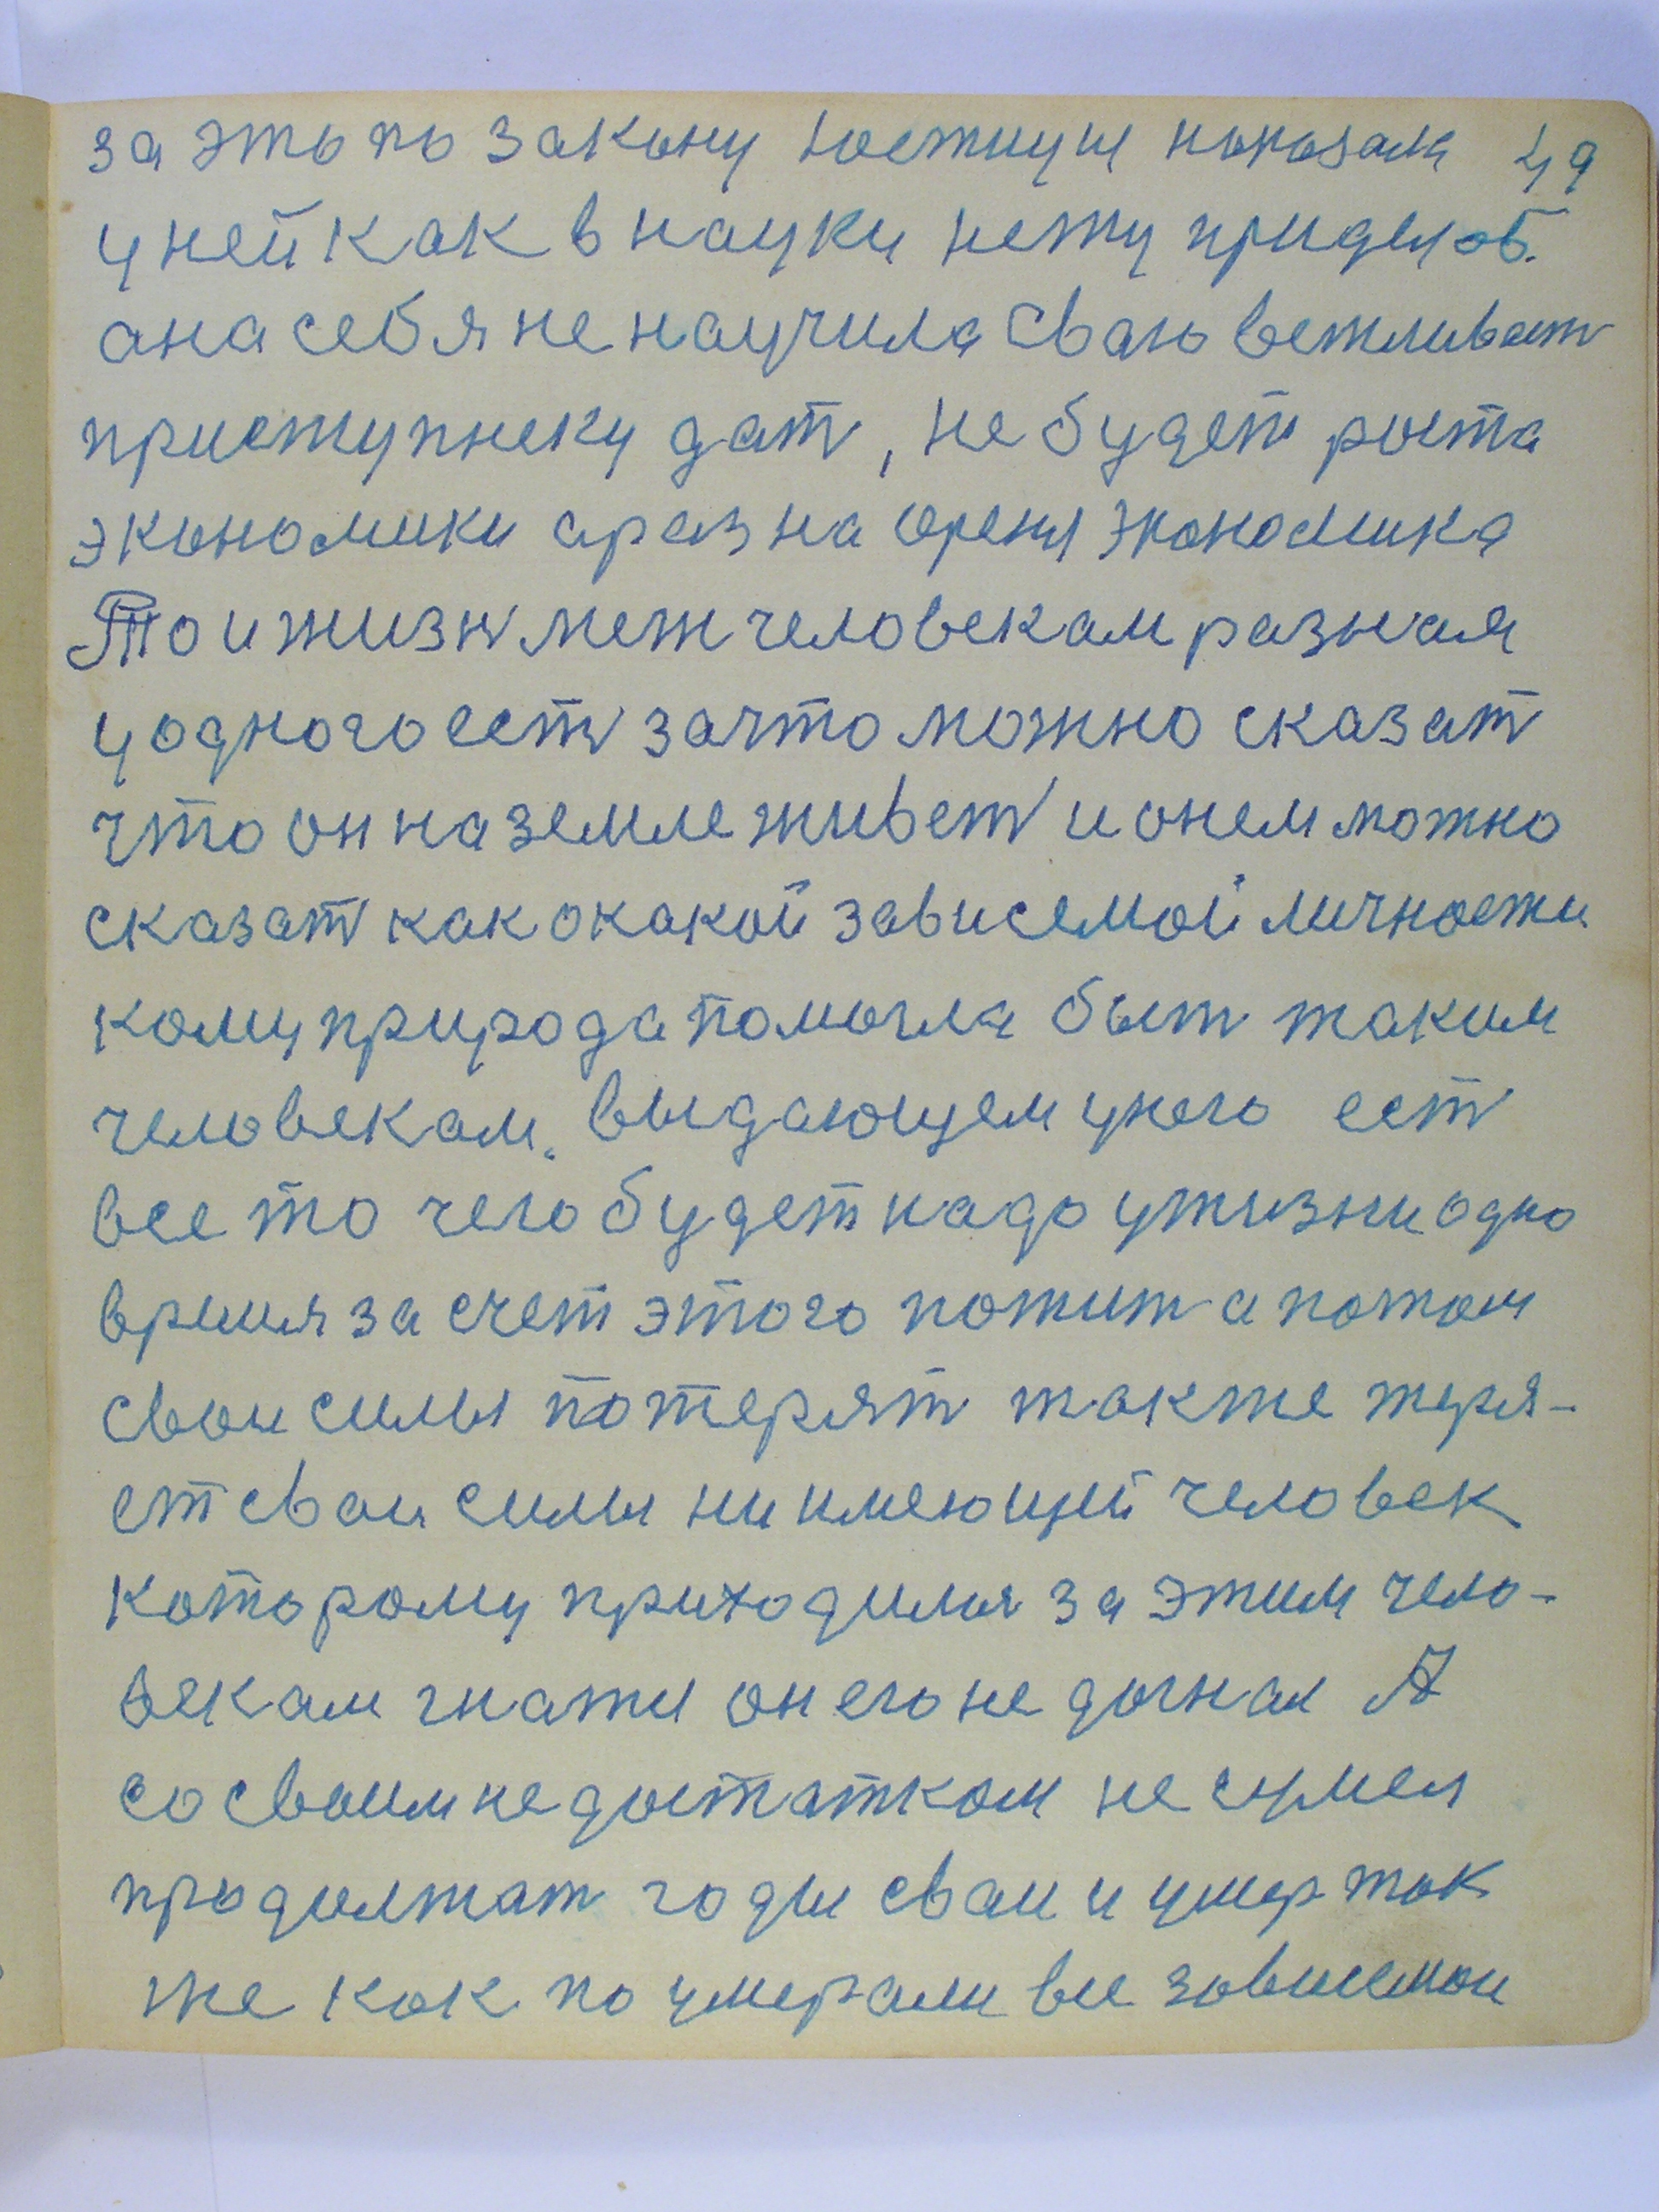 за это по закону юстиция показала 49
у ней как в науки нету приделов.
она себя не научила Сваю вежливаст
приступнеку дат, не будет роста
экономики
То и жизн меж человекам разная
у одного ест за что можно сказат
что он на земле живет и о нем можно
сказат как о какой зависемой личности
кому природа помогла быт таким
человекам. выдающем у кого ест
все то чего будет надо у жизни одно
время за счет этого пожит а потом
свои силы потерят также теря-
ет сваи силы ни имеющий человек
которому приходился за этим чело-
векам гнатся он его не догнал А
со сваим недостатком не сумел
продолжат годы сваи и умер так
же как по умерали все зависемои